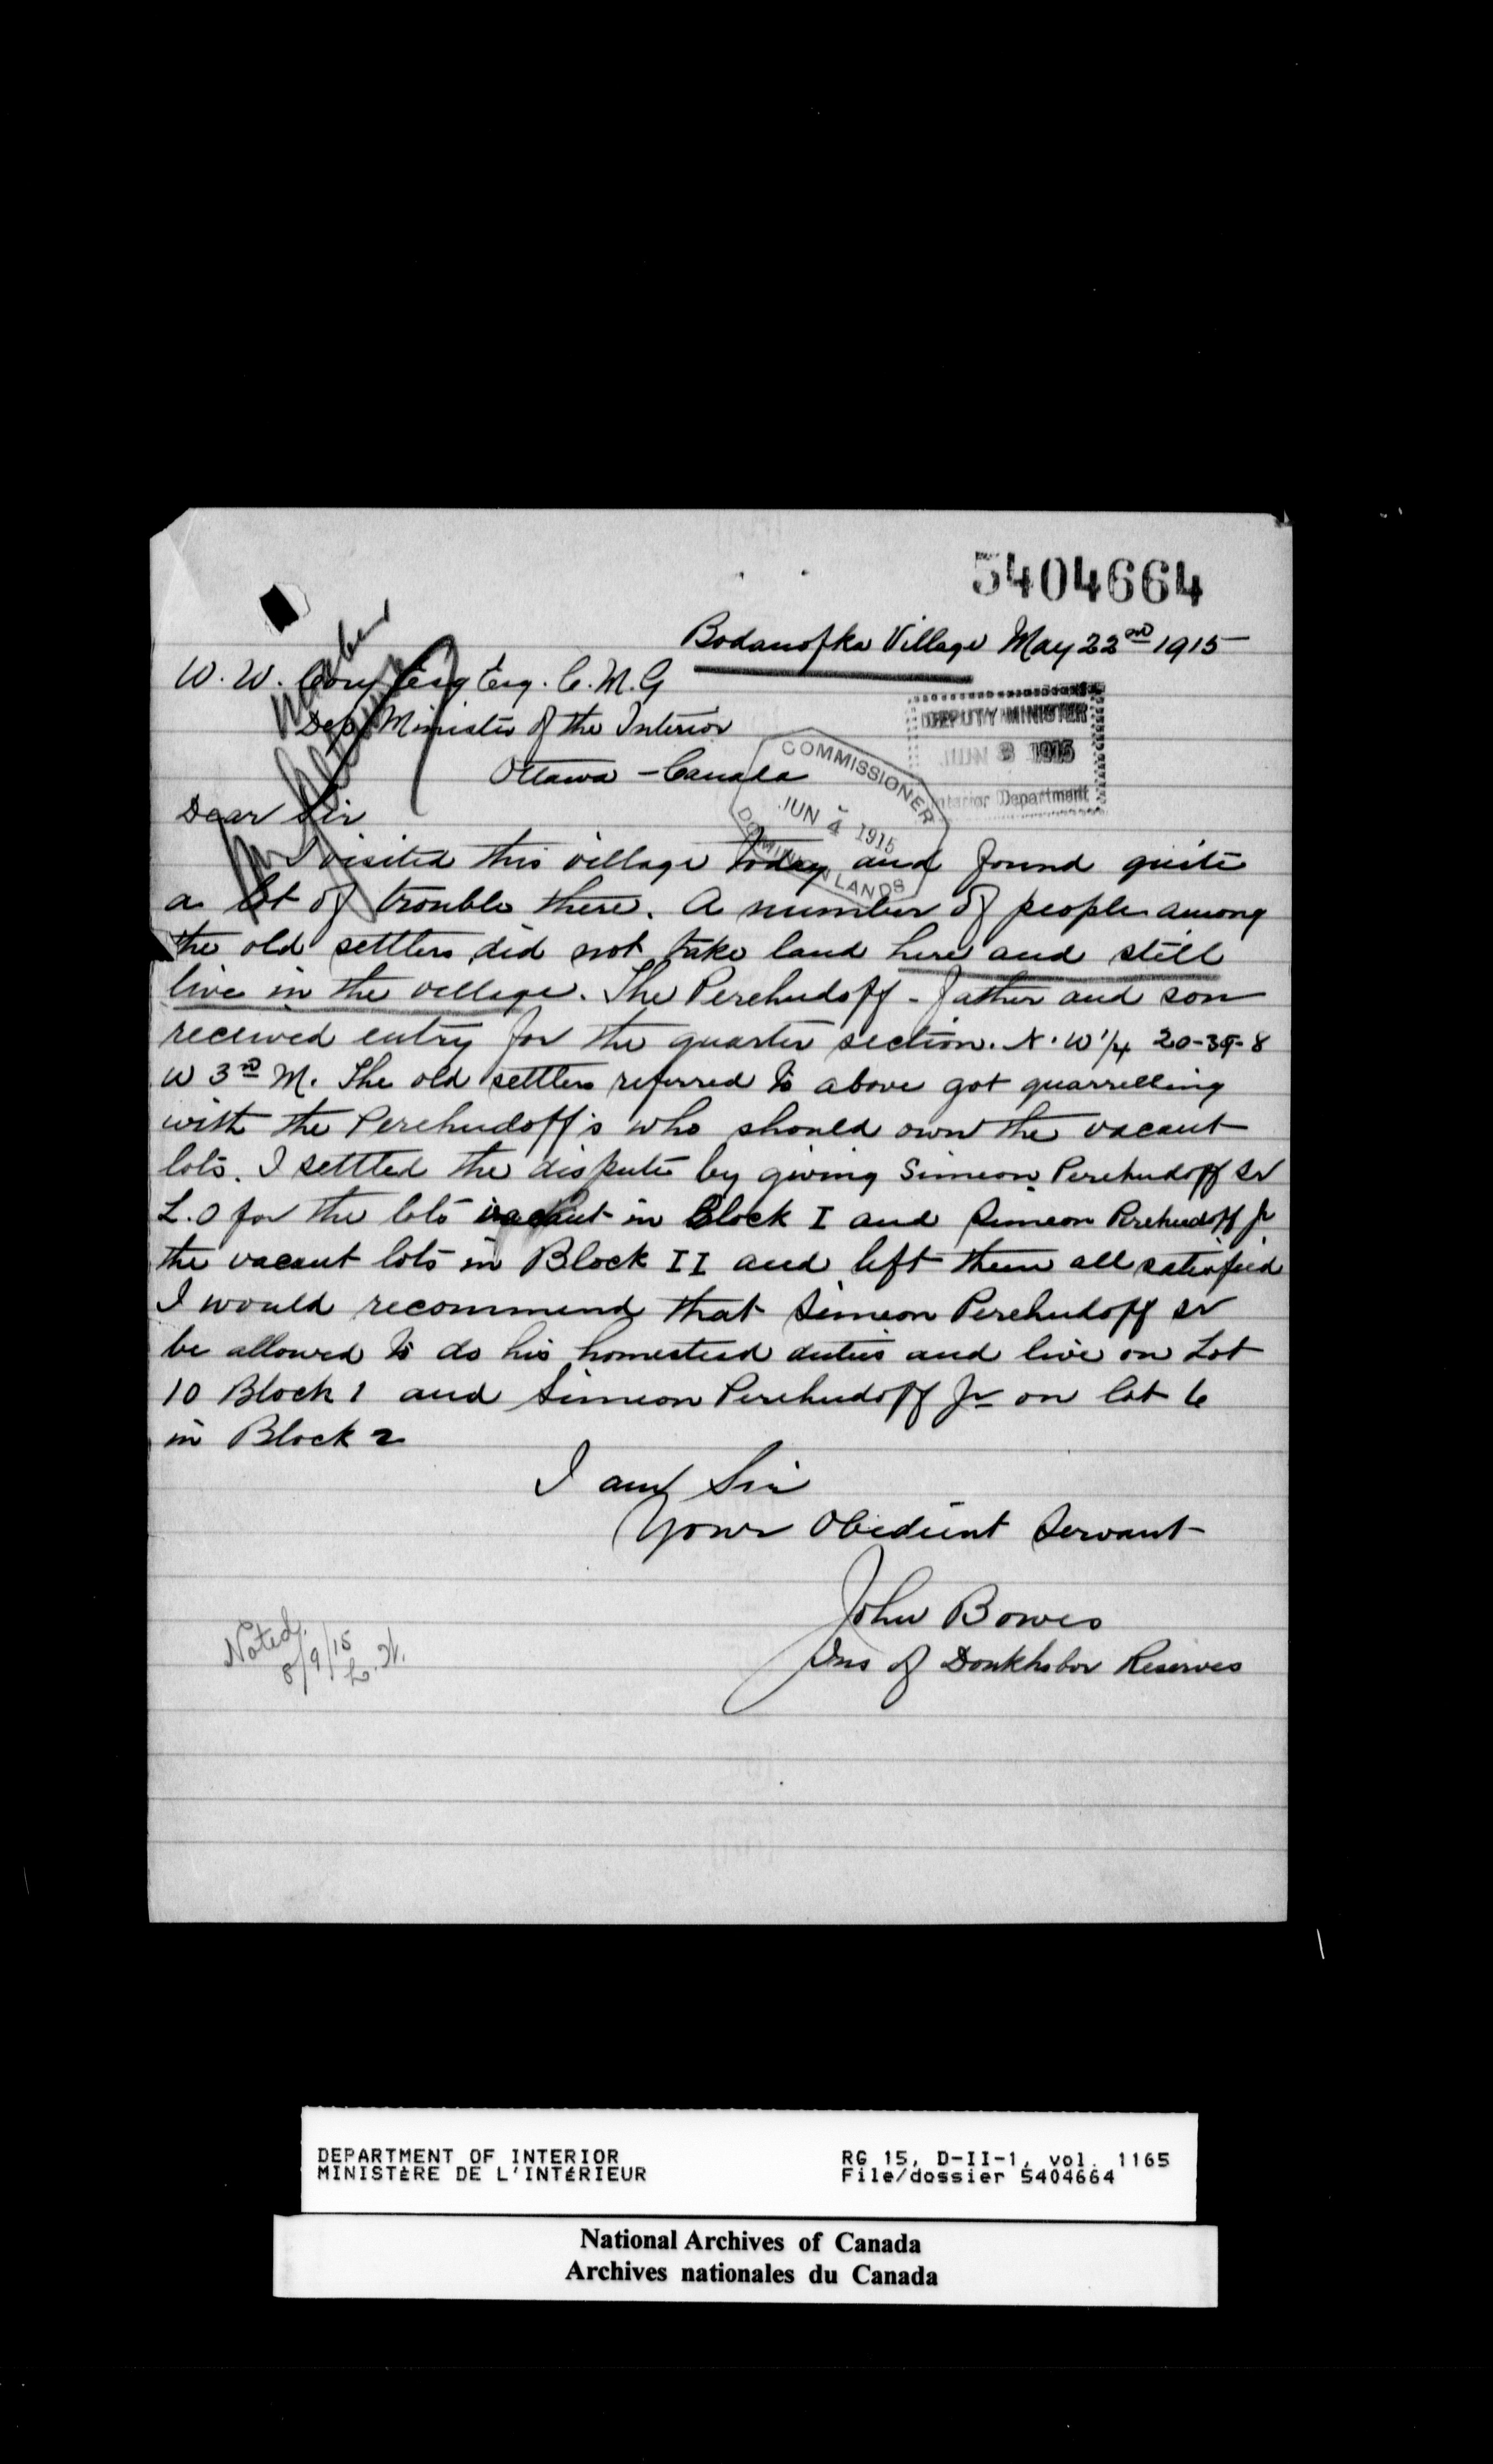 5404664
Bodanofka Village May 22nd 1915
W. W. Cory Esq Esq. C. M. G
Dep Minister of the Interior
Ottawa - Canada
DEPUTY MINISTER
JUN 3 1915
Interior Department
COMMISSIONER
JUN 4 1915
DOMINION LANDS
Dear Sir
I visited this village today and found quite
a lot of trouble there. A number of people among
the old settlers did not take land here and still
live in the village. The Perehudoff - father and son
received entry for the quarter section. N. W 1/4 20-39-8
W 3rd M. The old settlers referred to above got quarrelling
with the Perehudoff's who should own the vacant
lots. I settled the dispute by giving Simeon Perehudoff Sr
L.O for the lots vacant in Block I and Simeon Perehudoff Jr
the vacant lots in Block II and left them all satisfied
I would recommend that Simeon Perehudoff Sr
be allowed to do his homestead duties and live on Lot
10 Block 1 and Simeon Perehudoff Jr on lot 6
in Block 2
I am Sir
Your Obedient Servant
John Bowes
Ins of Doukhobor Reserves
Noted.
8/9/15
DEPARTMENT OF INTERIOR
MINISTÈRE DE L'INTÉRIEUR
RG 15, D-II-1, vol. 1165
File/dossier 5404664
National Archives of Canada
Archives nationales du Canada